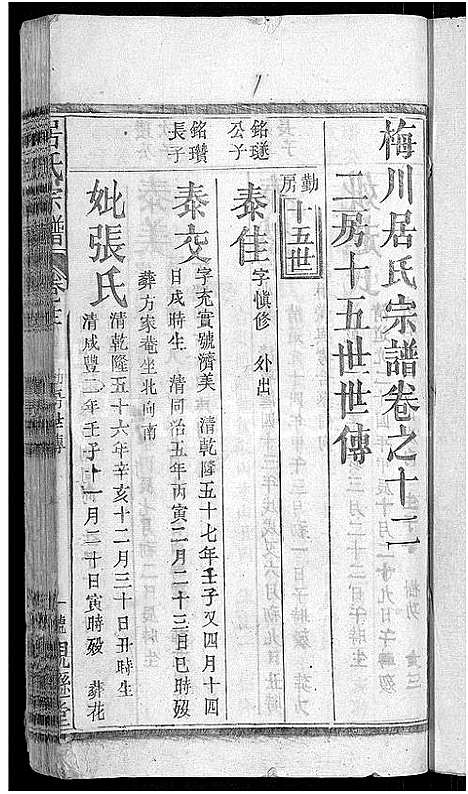 梅川居氏宗譜卷之十二
二房十五世世傳
勤房
十五世
銘璲公子
泰佳
字愼修 外出
銘瓚長子
泰交
字充實號濟美 清乾隆五十七年壬子又四月十四
日戌時生 清同治五年丙寅二月二十三日巳時歿
葬方家菴坐北向南
妣張氏
清乾隆五十六年辛亥十二月三十日丑時生
清咸豐二年壬子十一月二十日寅時歿 葬花
居氏宗譜